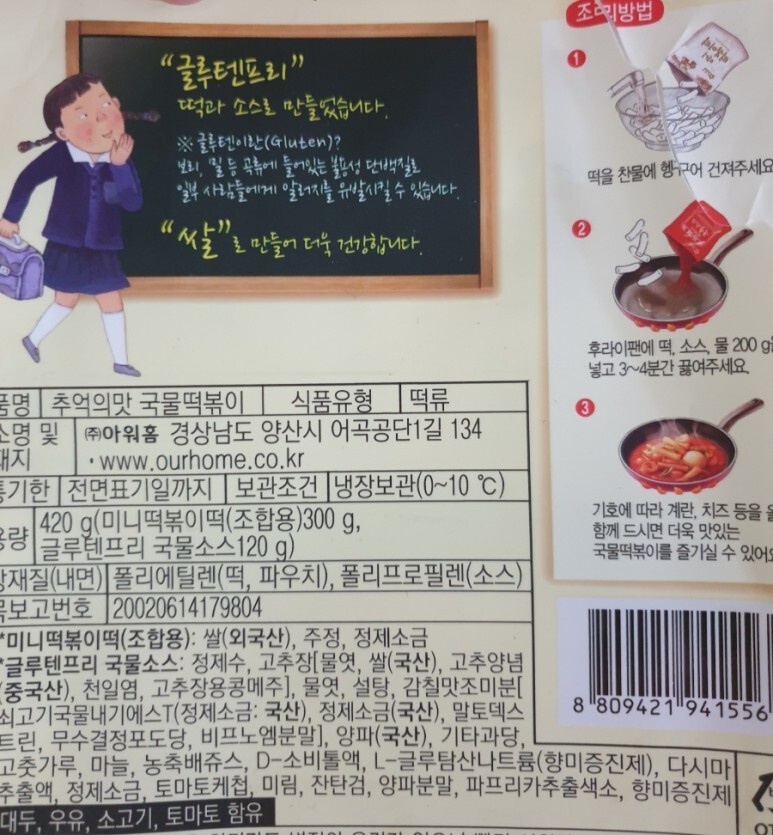 "글루텐프리"
떡과 소스로 만들었습니다.
※ 글루텐이란(Gluten)?
보리, 밀 등 곡류에 들어있는 불용성 단백질로
일부 사람들에게 알러지를 유발시킬 수 있습니다.
"쌀"로 만들어 더욱 건강합니다.
조리방법
1
떡을 찬물에 헹구어 건져주세요
2
후라이팬에 떡, 소스, 물 200 g을
넣고 3~4분간 끓여주세요.
3
기호에 따라 계란, 치즈 등을
함께 드시면 더욱 맛있는
국물떡볶이를 즐기실 수 있어요
품명 추억의맛 국물떡볶이 식품유형 떡류
소명 및 ㈜아워홈 경상남도 양산시 어곡공단1길 134
재지 • www.ourhome.co.kr
통기한 전면표기일까지 보관조건 냉장보관(0~10 ℃)
용량 420 g(미니떡볶이떡(조합용)300 g,
글루텐프리 국물소스120 g)
장재질(내면) 폴리에틸렌(떡, 파우치), 폴리프로필렌(소스)
목보고번호 20020614179804
*미니떡볶이떡(조합용): 쌀(외국산), 주정, 정제소금
*글루텐프리 국물소스: 정제수, 고추장[물엿, 쌀(국산), 고추양념
(중국산), 천일염, 고추장용콩메주], 물엿, 설탕, 감칠맛조미분[
쇠고기국물내기에스T(정제소금: 국산), 정제소금(국산), 말토덱스
트린, 무수결정포도당, 비프노엠분말], 양파(국산), 기타과당,
고춧가루, 마늘, 농축배쥬스, D-소비톨액, L-글루탐산나트륨(향미증진제), 다시마
추출액, 정제소금, 토마토케첩, 미림, 잔탄검, 양파분말, 파프리카추출색소, 향미증진제
대두, 우유, 소고기, 토마토 함유
8 809421 941556